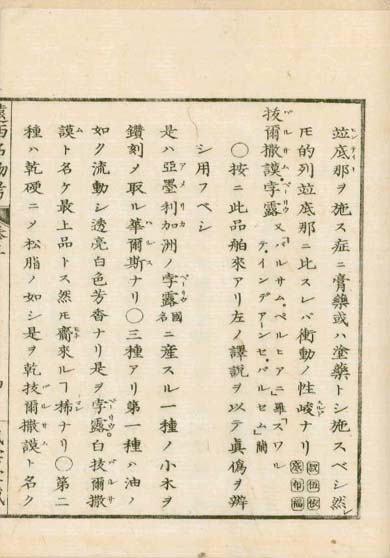 竝底那ヲ施ス症ニ膏藥或ハ塗藥トシ施スベシ然レ
㞮的列竝底那ニ比スレバ衝動ノ性峻ナリ
拔爾撒謨孛露 又「バルサム・ペルヒアニ」羅「スワル
テ インデアーンセ・バルセム」蘭
○按ニ此品舶來アリ左ノ譯説ヲ以テ眞僞ヲ辨
シ用フベシ
是ハ亞墨利加洲ノ孛露國名ニ産スル一種ノ小木ヲ
鑽刻メ取ル華爾斯ナリ○三種アリ第一種ハ油ノ
如ク流動シ透亮白色芳香ナリ是ヲ孛露白拔爾撒
謨ト名ケ最上品トス然モ齎來ルヿ稀ナリ○第二
種ハ乾硬ニメ松脂ノ如シ是ヲ乾拔爾撒謨ト名ク
遠西名物考